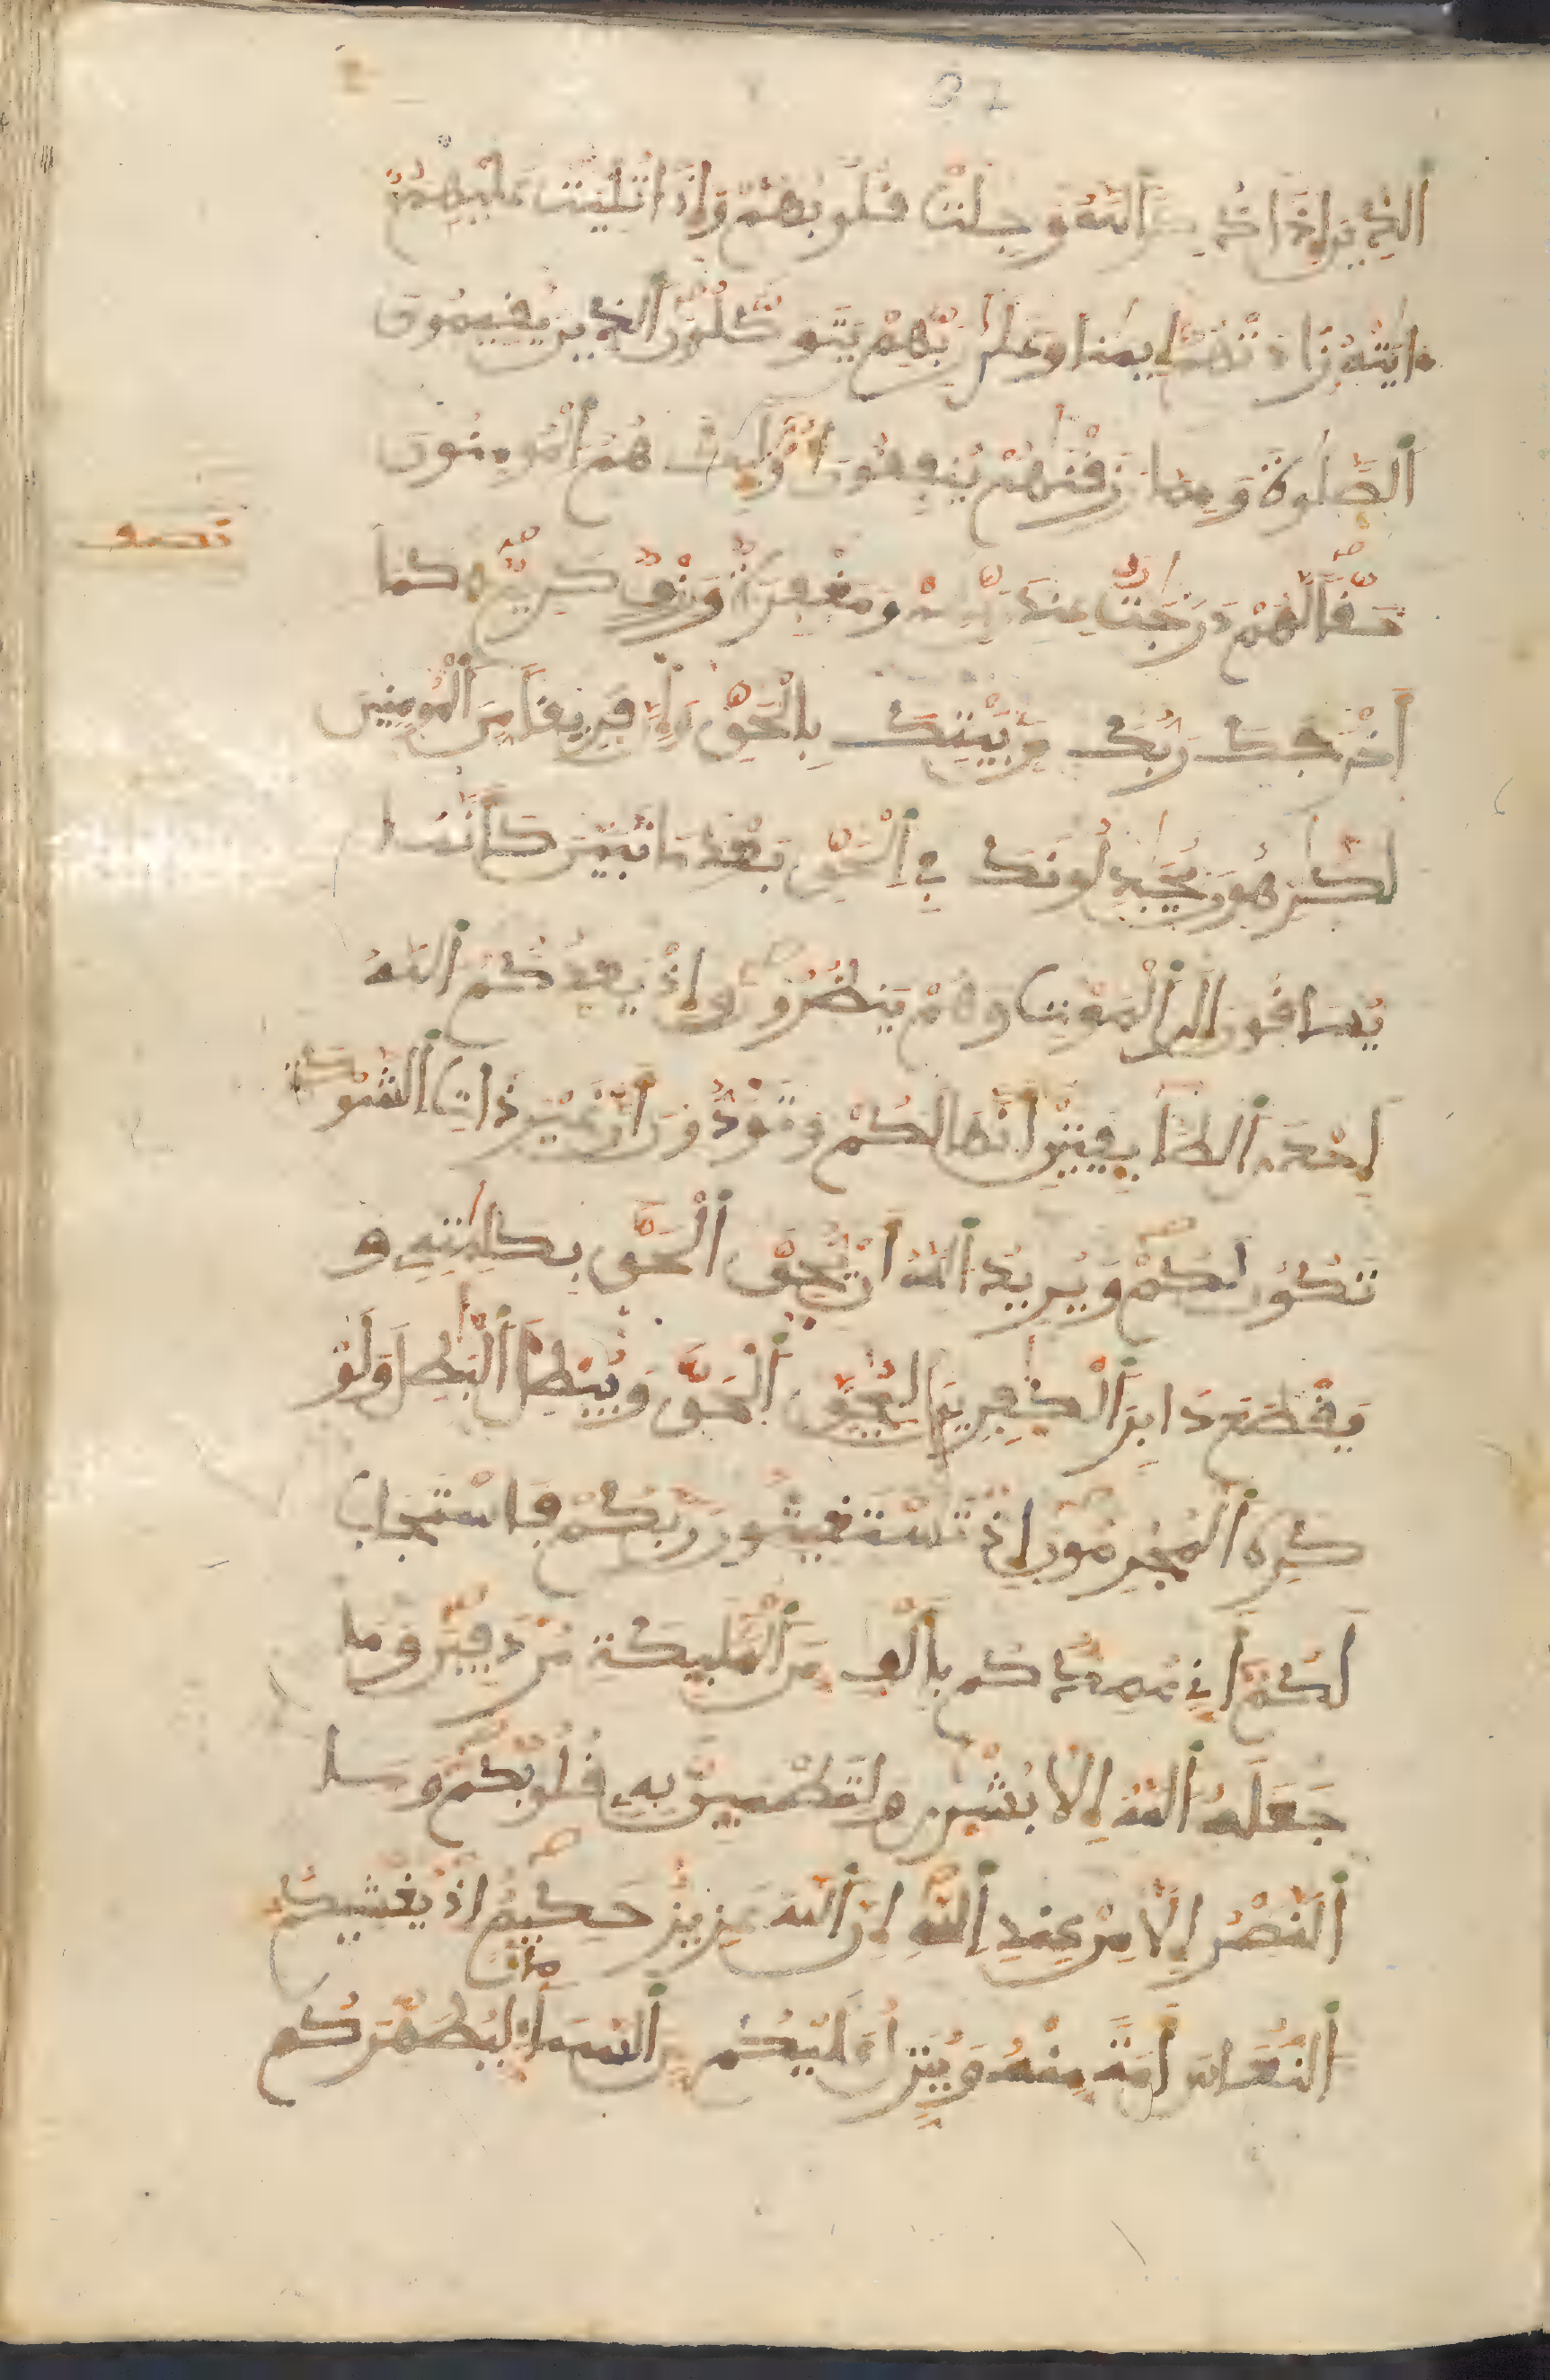 32
ألذين إذا ذكر ألله وجلت قلوبهم وإذا تليت عليهم
ءايته زادتهم إيمنا وعلى ربهم يتوكلون ألذين يقيمون
ألصلوة ومما رزقنهم ينفقون أوليك هم ألمومنون
حقا لهم درجت عند ربهم ومغفرة ورزق كريم كما
أخرجك ربك من بيتك بالحق وإن فريقا من ألمومنين
لكرهون يجدلونك في ألحق بعد ما تبين كأنما
يساقون إلى ألموت وهم ينظرون وإذ يعدكم ألله
إحدى ألطايفتين أنها لكم وتودون أن غير ذات ألشوكة
تكون لكم ويريد ألله أن يحق ألحق بكلمته و
يقطع دابر ألكفرين ليحق ألحق ويبطل ألبطل ولو
كره ألمجرمون إذ تستغيثون ربكم فاستجاب
لكم أني ممدكم بألف من ألمليكة مردفين وما
جعله ألله إلا بشرى ولتطمين به قلوبكم وما
ألنصر إلا من عند ألله إن ألله عزيز حكيم إذ يغشيكم
ألنعاس أمنة منه وينزل عليكم من ألسماء ماء ليطهركم